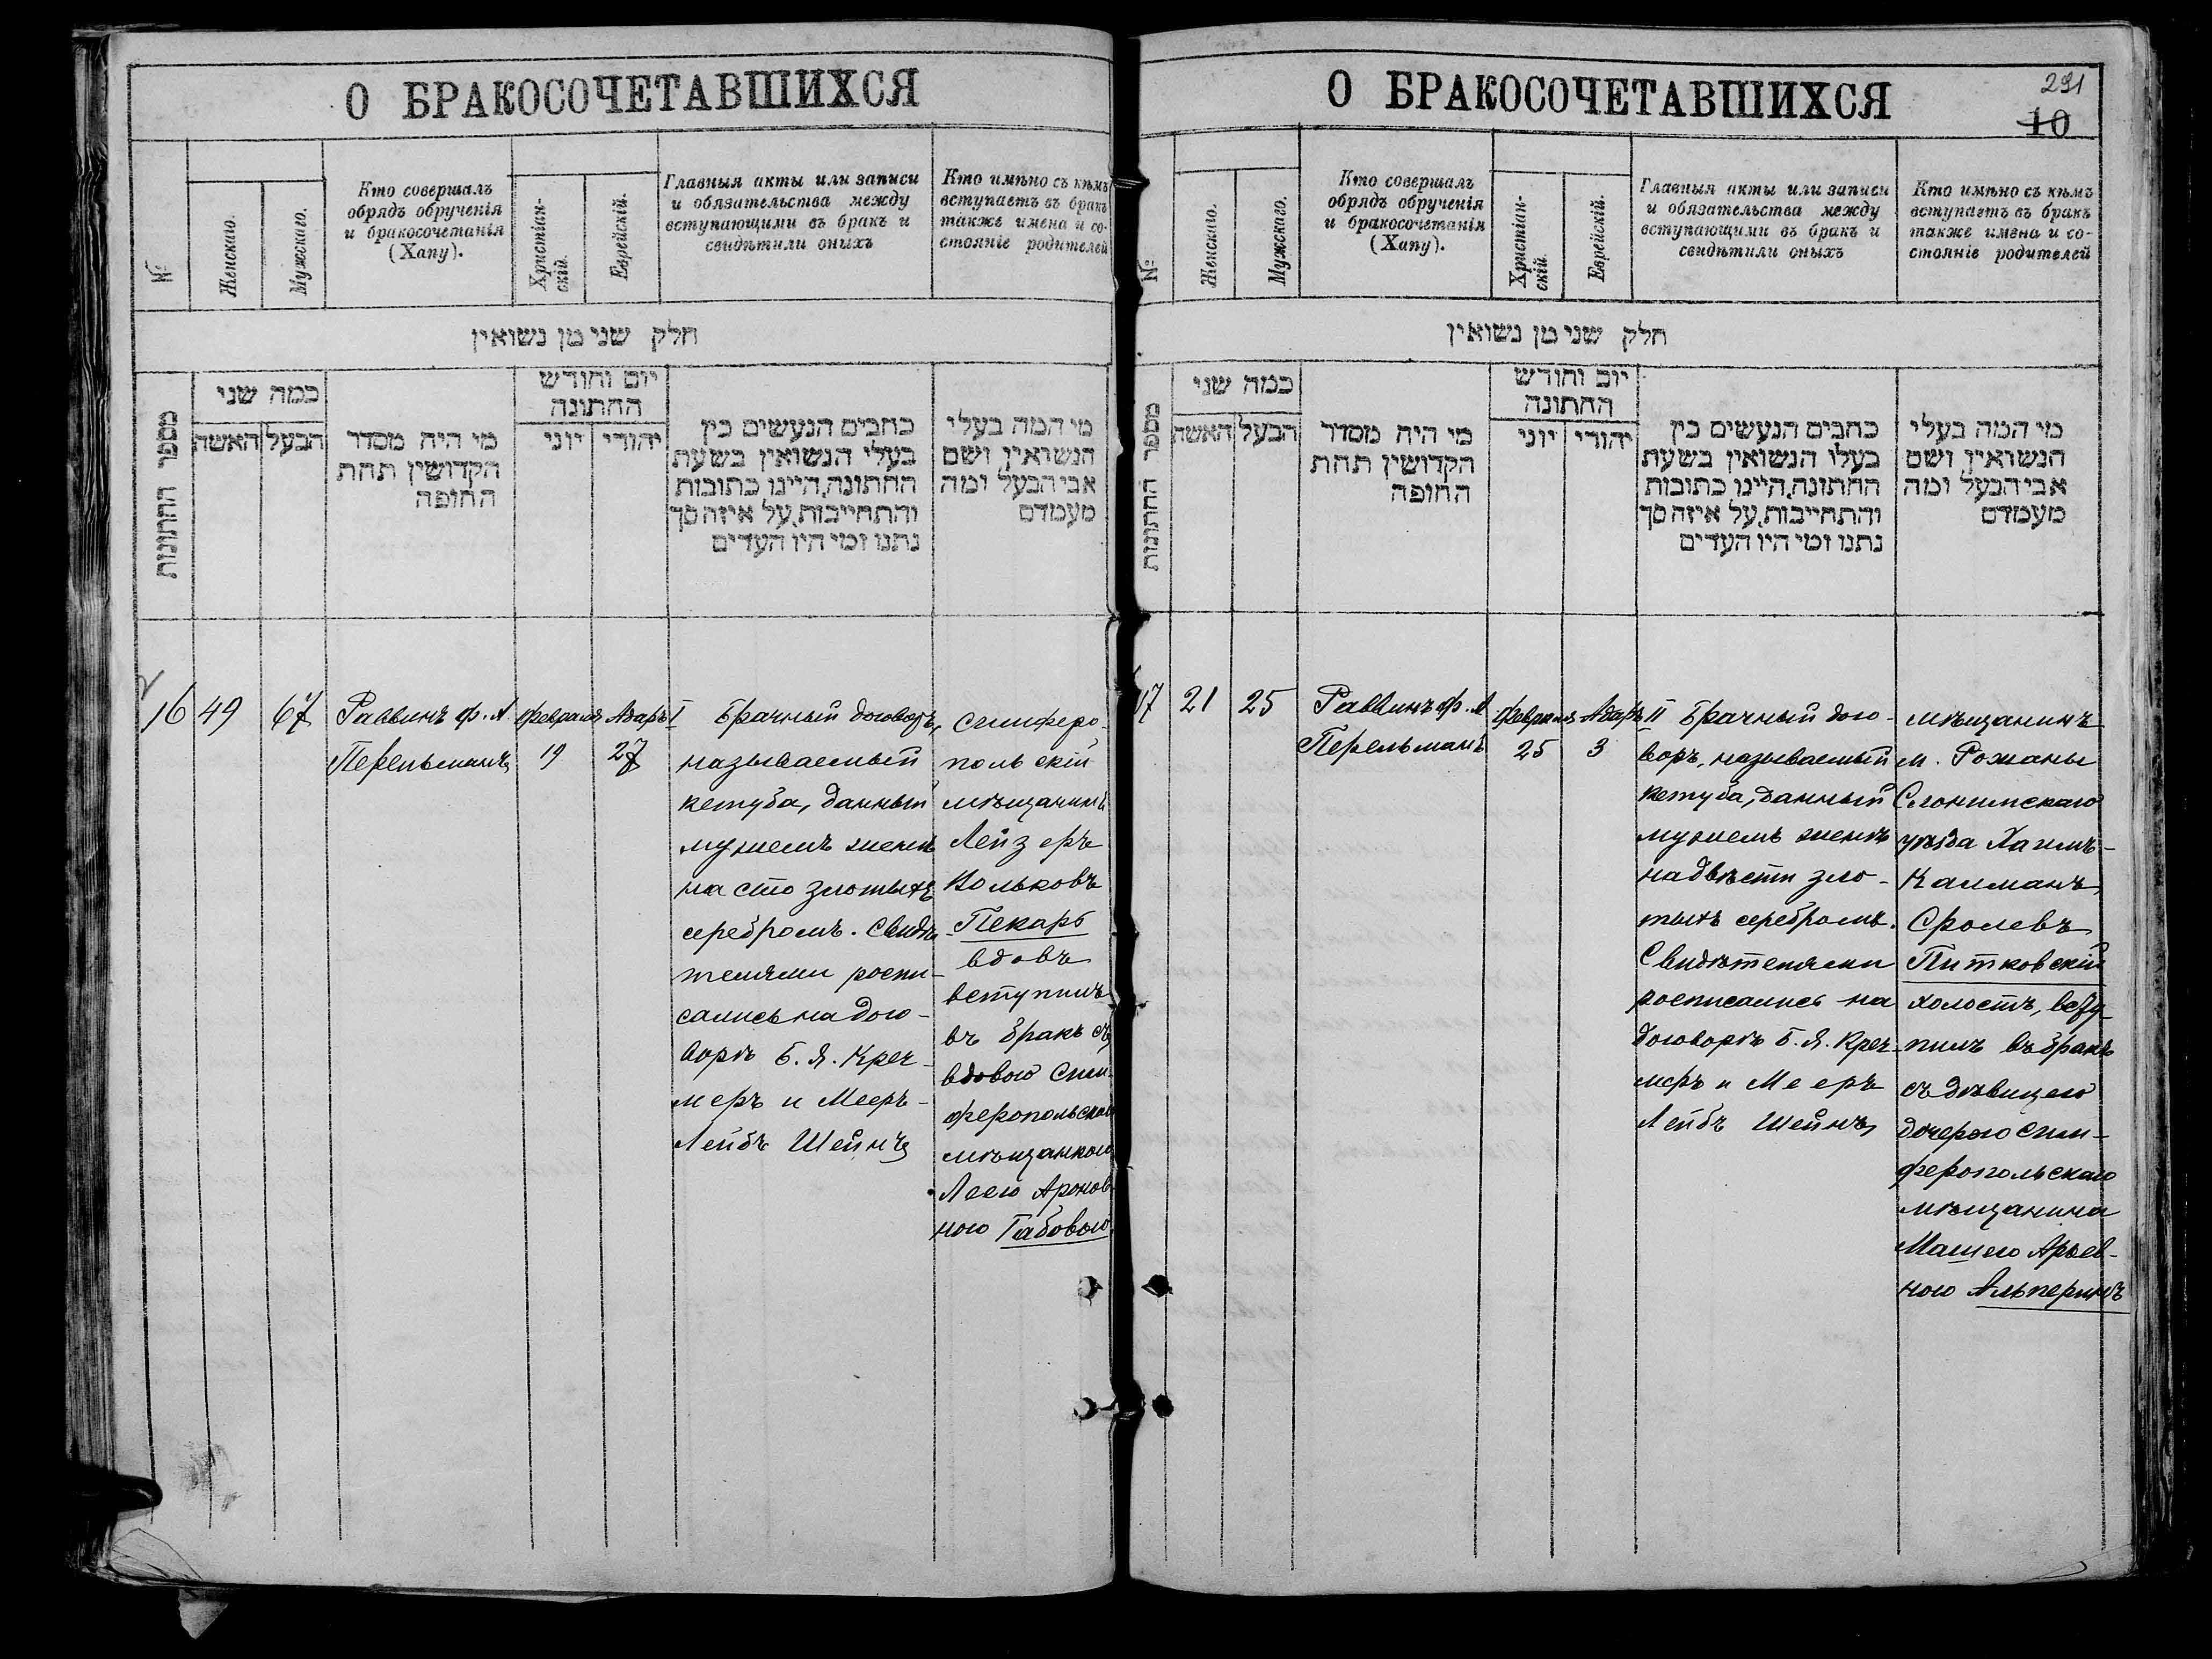 О БРАКОСОЧЕТАВШИХСЯ
№
Женскаго.
Мужскаго.
Кто совершалъ
обрядъ обрученія
и бракосочетанія
(Хапу).
Христіан-
скій.
Еврейскій.
Главныя акты или записи
и обязательства между
вступающими въ бракъ и
свидѣтили оныхъ
Кто имѣно съ кѣмъ
вступаетъ въ бракъ
также имена и со-
стояніе родителей
חלק שני מן נשואין
מספר החתונות
כמה שני
האשה
הבעל
מי היה מסדר
הקדושין תחת
החופה
יום וחודש
החתונה
יוני
יהודי
כתבים הנעשים בין
בעלי הנשואין בשעת
החתונה, היינו כתובות
והתחייבות, על איזה סך
נתנו ומי היו העדים
מי המה בעלי
הנשואין ושם
אבי הבעל ומה
מעמדם
16
49
67
Раввинъ Ф. А.
Перельманъ
Февраля
19
Адаръ I
27
Брачный договоръ,
называемый
кетуба, данный
мужемъ женѣ
на сто злотыхъ
серебромъ. Свидѣ
телями роспи-
сались на дого-
ворѣ Б. Я. Креч-
меръ и Мееръ-
Лейбъ Шейнъ
Симферо-
польскій
мѣщанинъ
Лейзеръ
Вольковъ
Пекарь
вдовъ
вступилъ
въ бракъ съ
вдовою Сим-
феропольскою
мѣщанкою
Леею Аронов-
ною Габовою
О БРАКОСОЧЕТАВШИХСЯ
291
10
№
Женскаго.
Мужскаго.
Кто совершалъ
обрядъ обрученія
и бракосочетанія
(Хапу).
Христіан-
скій.
Еврейскій.
Главныя акты или записи
и обязательства между
вступающими въ бракъ и
свидѣтили оныхъ
Кто имѣно съ кѣмъ
вступаетъ въ бракъ
также имена и со-
стояніе родителей
חלק שני מן נשואין
מספר החתונות
כמה שני
האשה
הבעל
מי היה מסדר
הקדושין תחת
החופה
יום וחודש
החתונה
יוני
יהודי
כתבים הנעשים בין
בעלו הנשואין בשעת
החתונה, היינו כתובות
והתחייבות, על איזה סך
נתנו ומי היו העדים
מי המה בעלי
הנשואין ושם
אבי הבעל ומה
מעמדם
17
21
25
Раввинъ Ф. А
Перельманъ
Февраля
25
Адаръ II
3
Брачный дого-
воръ, называемый
кетуба, данный
мужемъ женѣ
на двѣсти зло-
тыхъ серебромъ.
Свидѣтелями
росписались на
договорѣ Б. Я. Креч-
меръ и Мееръ
Лейбъ Шейнъ
мѣщанинъ
м. Рожаны
Слонимскаго
уѣзда Хаимъ-
Калманъ
Сролевъ
Питковскій
холостъ, всту-
пилъ въ бракъ
съ дѣвицею
дочерью Сим-
феропольскаго
мѣщанина
Машею Арьев-
ною Альперинъ